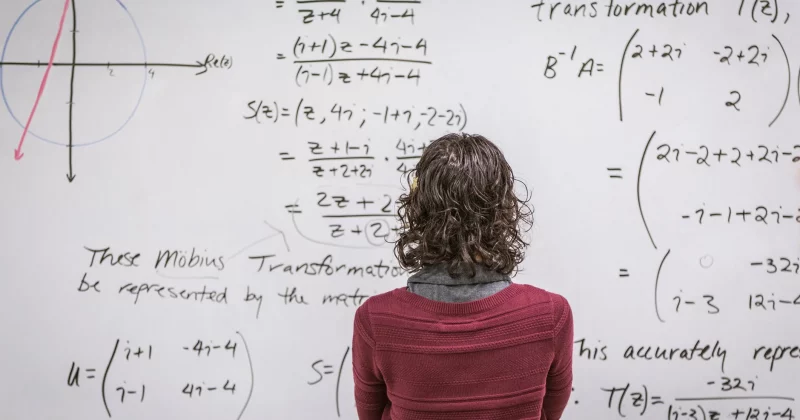 Re(z)
2 4
= z+4 · 4i-4
= (i+1)z-4i-4 / (i-1)z+4i-4
S(z)=(z, 4i; -1+i, -2-2i)
= z+1-i / z+2+2i · 4i
= 2z+2 / z+2
These Möbius Transformatio
be represented by the matri
U = ( i+1 -4i-4
i-1 4i-4 )
S= (
transformation T(z),
B⁻¹A= ( 2+2i -2+2i
-1 2 )
= ( 2i-2+2+2i-2
-i-1+2i-2
= ( 0 -32i
i-3 12i-4
his accurately repres
: T(z)= -32i / (i-3)z+12i-4